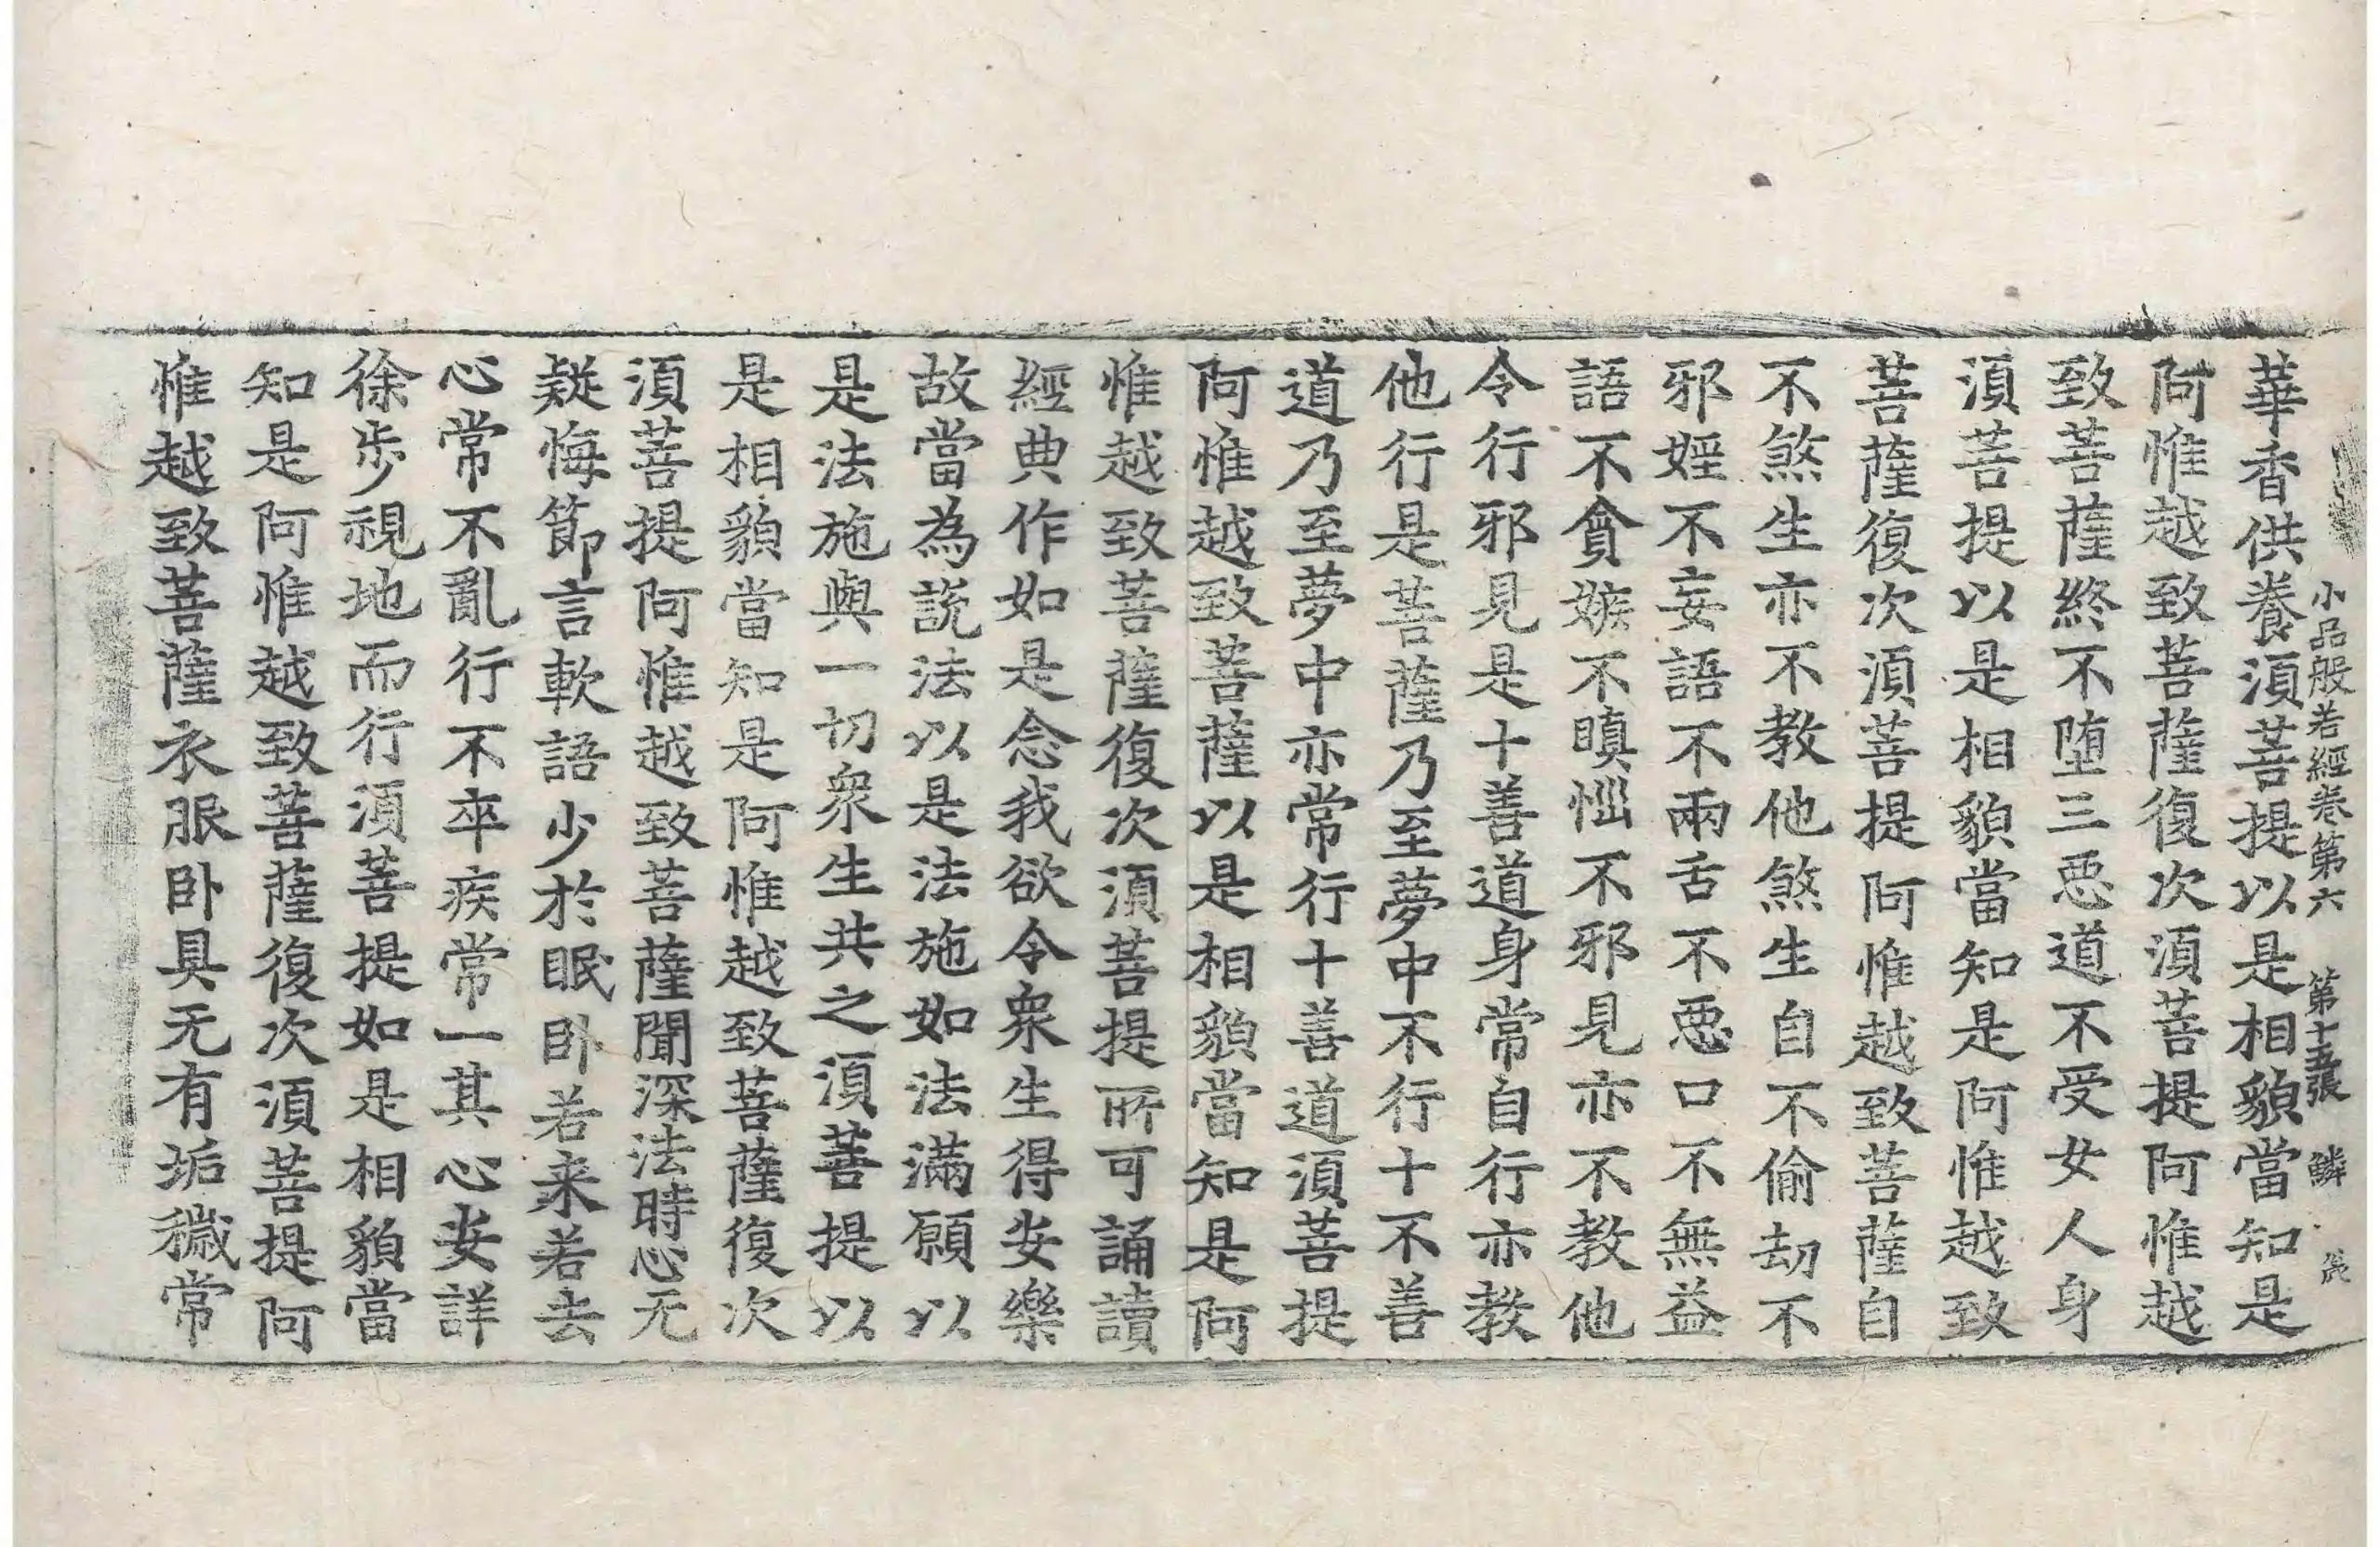 小品般若經卷第六 第十五張 鱗
華香供養須菩提以是相貌當知是
阿惟越致菩薩復次須菩提阿惟越
致菩薩終不墮三惡道不受女人身
須菩提以是相貌當知是阿惟越致
菩薩復次須菩提阿惟越致菩薩自
不煞生亦不教他煞生自不偷劫不
邪婬不妄語不兩舌不惡口不無益
語不貪嫉不瞋惱不邪見亦不教他
令行邪見是十善道身常自行亦教
他行是菩薩乃至夢中不行十不善
道乃至夢中亦常行十善道須菩提
阿惟越致菩薩以是相貌當知是阿
惟越致菩薩復次須菩提所可誦讀
經典作如是念我欲令衆生得安樂
故當為說法以是法施如法滿願以
是法施與一切衆生共之須菩提以
是相貌當知是阿惟越致菩薩復次
須菩提阿惟越致菩薩聞深法時心无
疑悔節言軟語少於眠卧若来若去
心常不亂行不卒疾常一其心安詳
徐步視地而行須菩提如是相貌當
知是阿惟越致菩薩復次須菩提阿
惟越致菩薩衣服卧具无有垢穢常